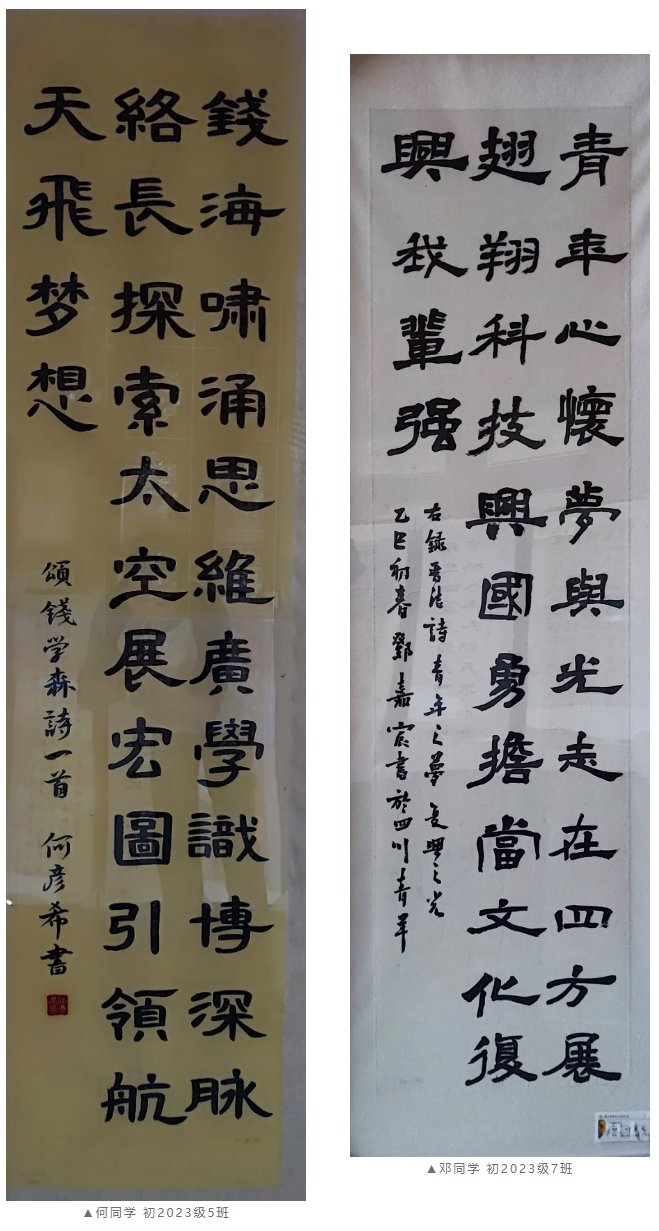 錢海啸涌思維廣學識博深脉
絡長探索太空展宏圖引領航
天飛梦想
頌錢学森詩一首 何彦希書
▲何同学 初2023级5班
青年心懷夢與光走在四方展
翅翔科技興國勇擔當文化復
興我輩强
右錄 詩青年之夢復興之光
乙巳初春鄧嘉宸書於四川青羊
▲邓同学 初2023级7班